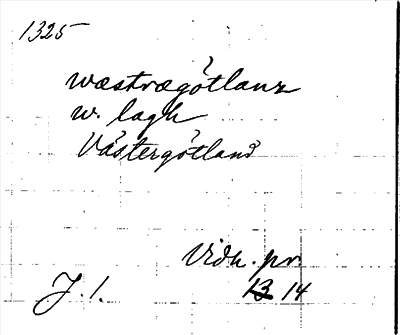 1325
wæstrægøtlanz
w. lagh
Västergötland
Vidh. pr.
J. 1. 13 14